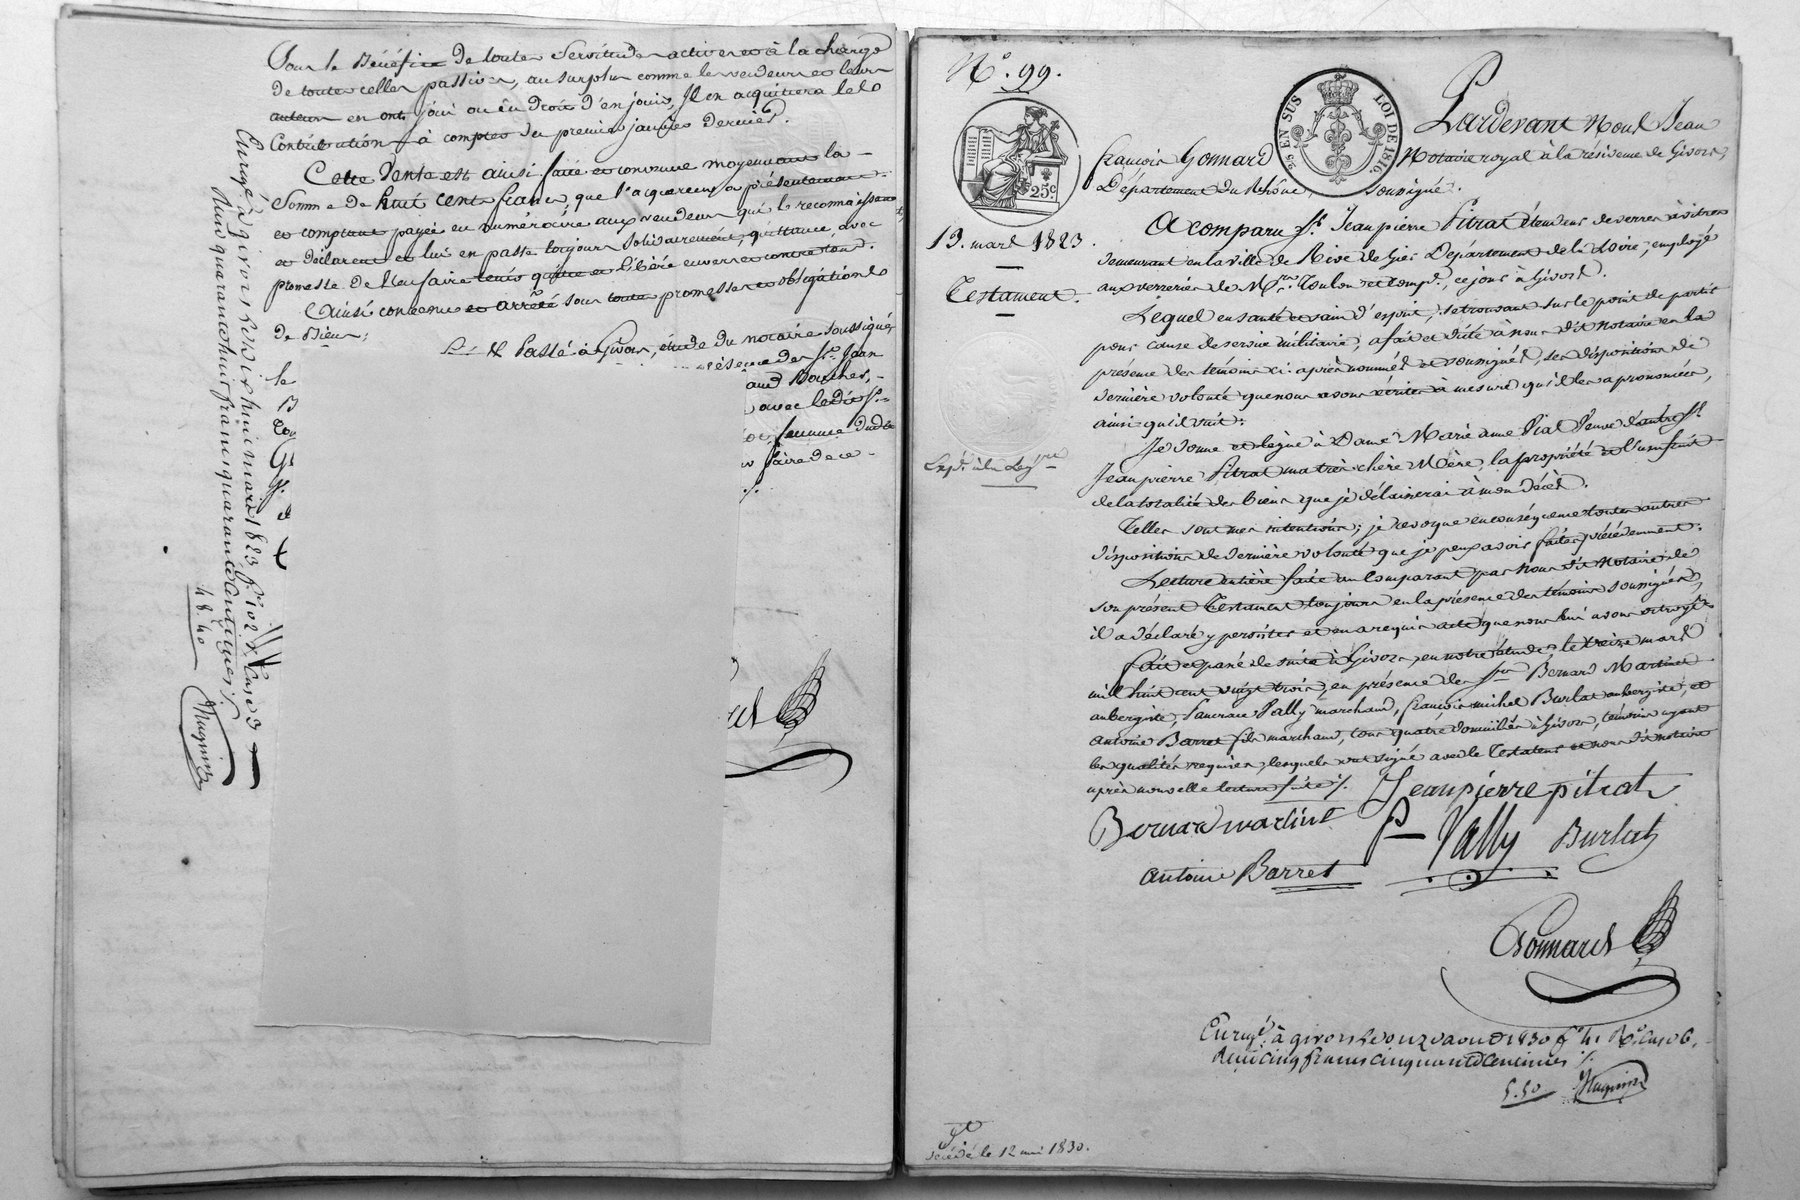 Sous le Bénéfice de toutes Servitudes actives et à la charge
de toutes celles passives, au surplus comme les vendeurs et leurs
auteurs en ont joui ou eu droit d'en jouir, Il en acquittera les
Contributions à compter du premier janvier dernier.
Cette Vente est ainsi faite et convenue moyennant la
Somme de huit cents francs, que l'acquéreur a présentement
et comptant payée en numéraire aux vendeurs qui le reconnaissent,
et déclarent et lui en passe toujours solidairement, quittance, avec
promesse de l'en faire tenir quitte et libéré envers et contre tous.
Ainsi convenu et arrêté sous toutes promesses et obligations
de Bien;
Fait & Passé à Givors, étude du notaire soussigné,
présence des Srs. Jean
le
aud Boucher,
B
avec ledit Sr.
femme dudit
faire de ce
Enregé à givors le dix huit mars 1823 fo. 102 Ro. Case 3
Reçu quarante huit francs quarante centimes
48.40
Nº. 99.
25 EN SUS
LOI DE 1816.
25c
Pardevant Nous Jean
françois Gonnard Notaire royal à la résidence de Givors,
Département du Rhône, soussigné.
13. mars 1823.
Testament.
A comparu Sr. Jeanpierre Pitrat étendeur de verres à vitres
demeurant en la ville de Rive de Gier Département de la Loire; employé
aux verreries de Mrs. Toulon et Comp.e, ce jour à Givors.
Lequel en santé et sain d'esprit, se trouvant sur le point de partir
pour cause de service militaire, a fait et dicté à nous dit notaire en la
présence des témoins ci-après nommés et soussignés, ses dispositions de
dernière volonté que nous avons écrites à mesure qu'il les a prononcées,
ainsi qu'il suit:
Je donne et lègue à Dame Marie anne Piat Veuve d'autre Sr.
Jeanpierre Pitrat ma très chère Mère, la propriété et l'usufruit
de la totalité des biens que je délaisserai à mon décès.
Telles sont mes intentions; je révoque en conséquence toutes autres
dispositions de dernière volonté que je peux avoir faites précédemment.
Lecture entière faite au Comparant par Nous dit Notaire de
son présent Testament toujours en la présence des témoins soussignés,
il a déclaré y persister et en a requis acte que nous lui avons octroyé
fait et passé de suite à Givors, en notre étude, le treize mars
mil huit cent vingt trois, en présence des Srs. Bernard Martinet
aubergiste, Pancrace Vally marchand, françois michel Burlat aubergiste, et
antoine Barret fils marchand, tous quatre domiciliés à Givors, témoins ayant
les qualités requises, lesquels ont signé avec le Testateur et nous dit notaire
après nouvelle lecture faite ./.
Jeanpierre pitrat
Bernard martinet P Vally Burlat
antoine Barret
Gonnard
Enregé. à givors le onze aout 1830 fo. 41 Ro. case 6,
Reçu cinq francs cinquante centimes ./.
5.50
décédé le 12 mai 1830.